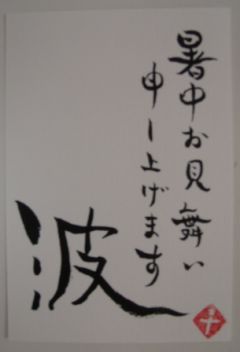 暑中お見舞い
申し上げます
波